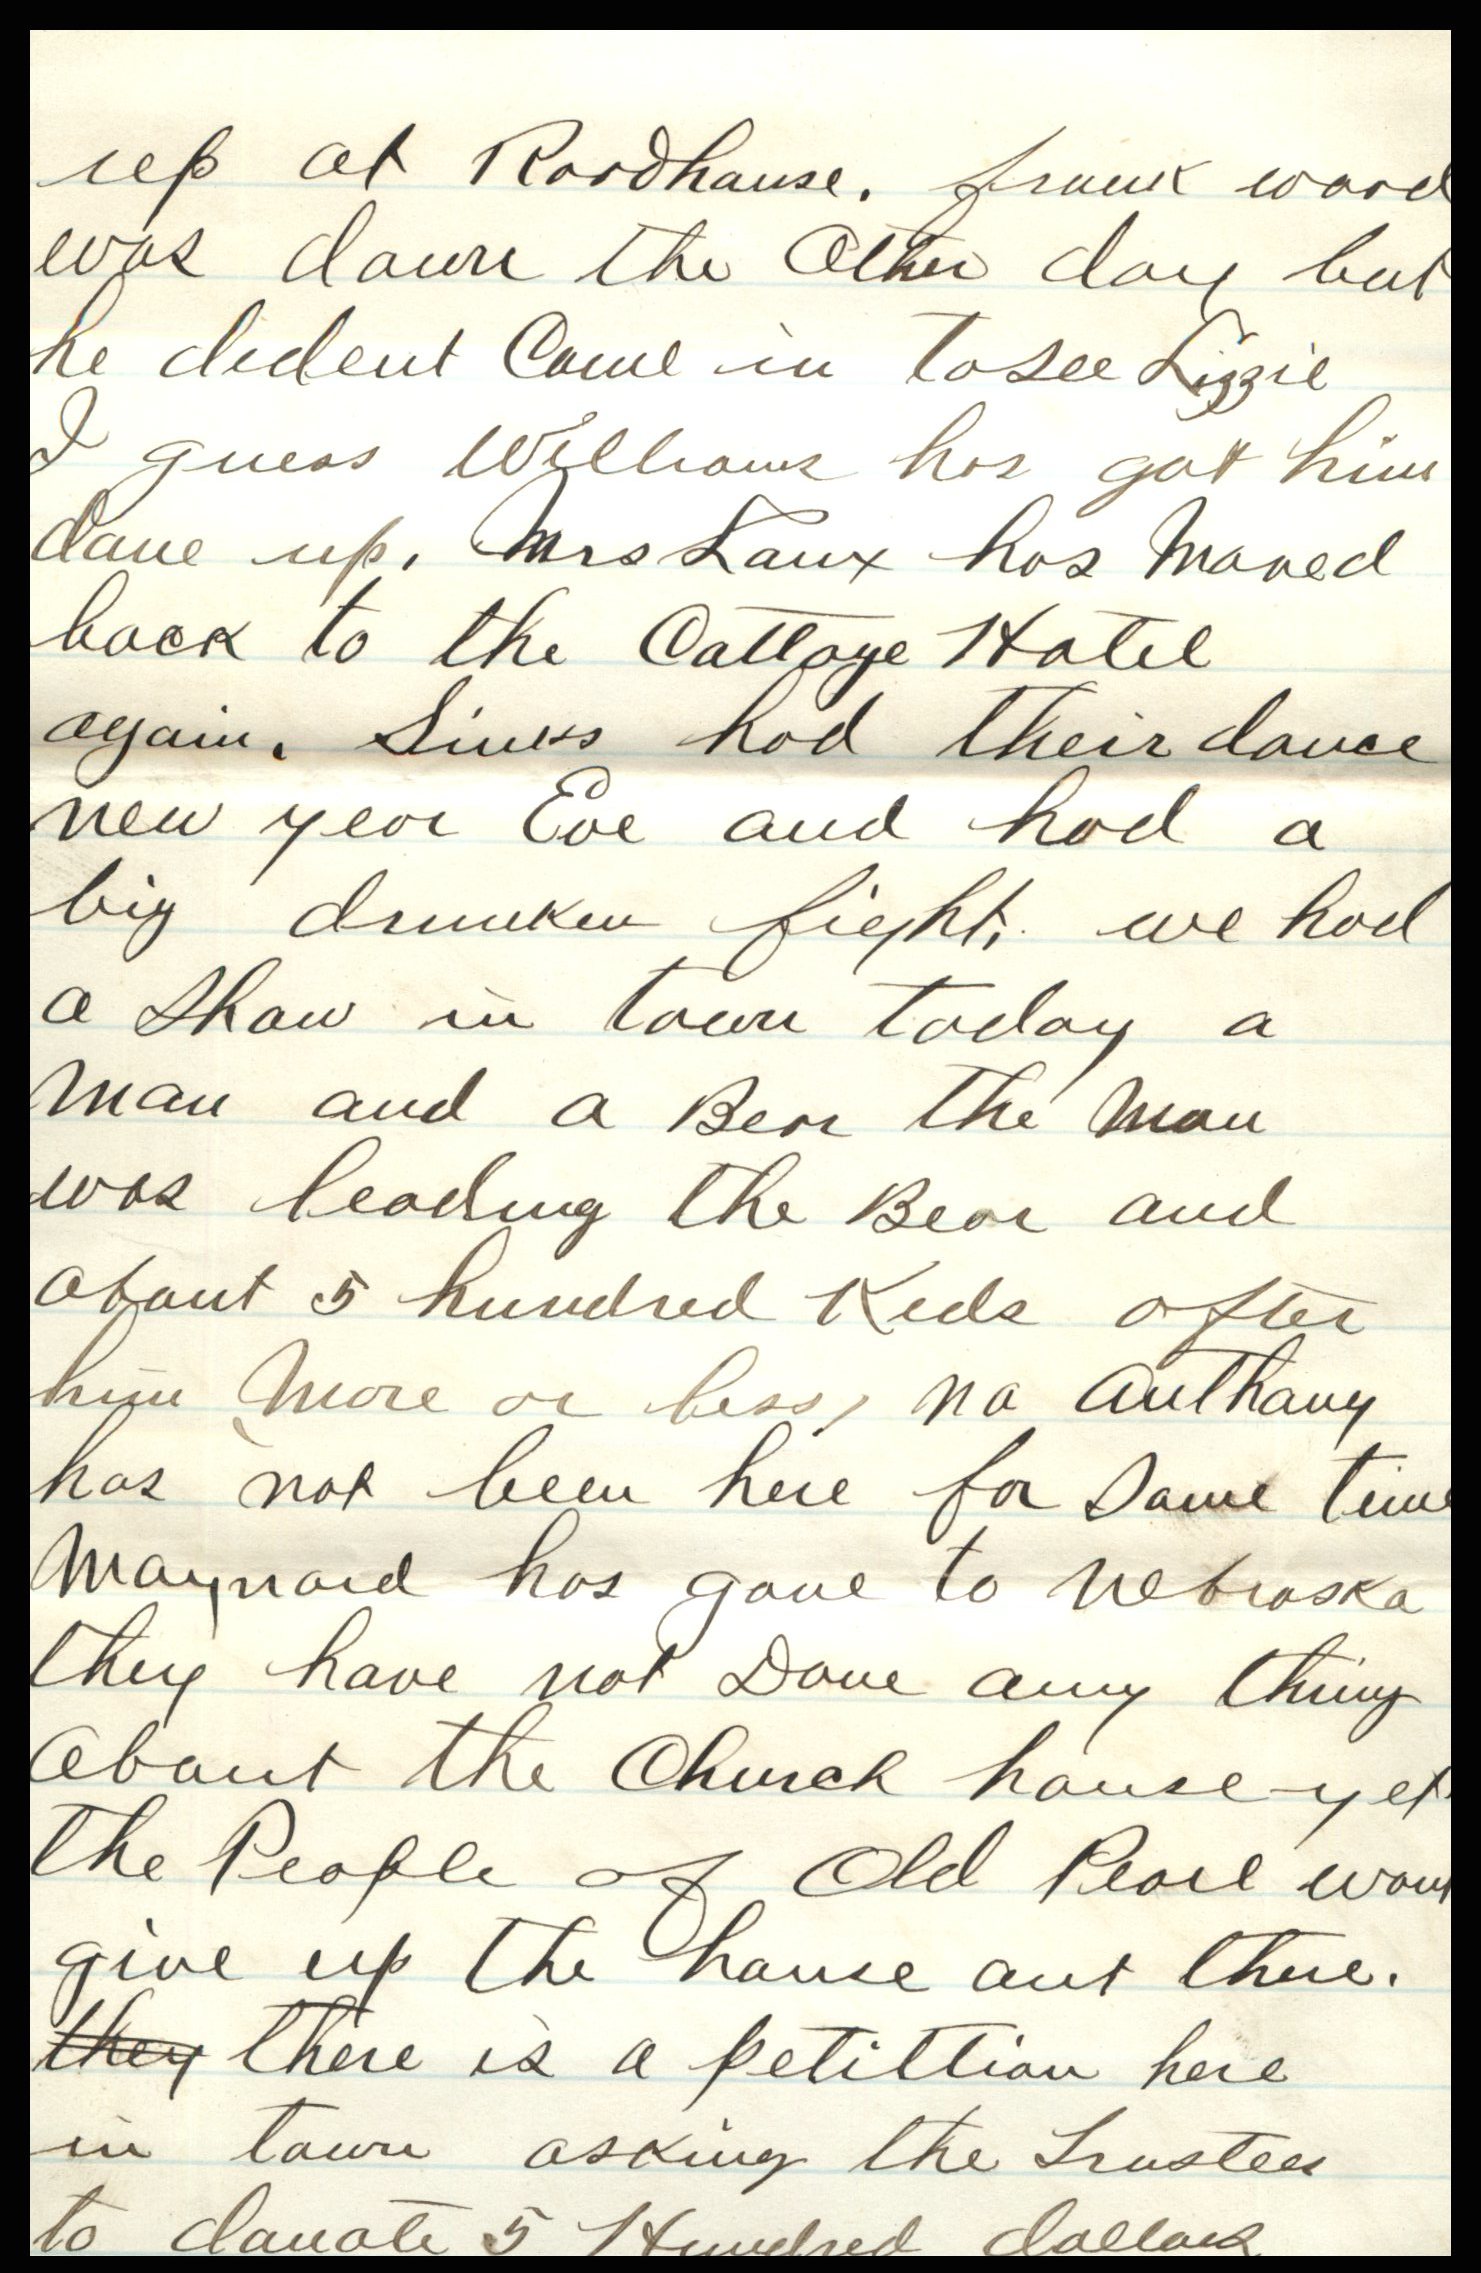 up at Roodhouse. frank ward
was down the Other day but
he dident Come in to see Lizzie
I guess Williams has got him
done up. Mrs Laux has Moved
back to the Cottage Hotel
again. Sinks had their dance
new year Eve and had a
big drunken fight. we had
a Show in town today a
Man and a Bear the Man
was leading the Bear and
about 5 hundred Kids after
him More or less, no Anthony
has not been here for Some time
Maynard has gone to Nebraska
they have not Done any thing
About the Church house yet
the People of Old Pearl wont
give up the house out there.
they there is a petittion here
in town asking the Trustees
to donate 5 Hundred dollars